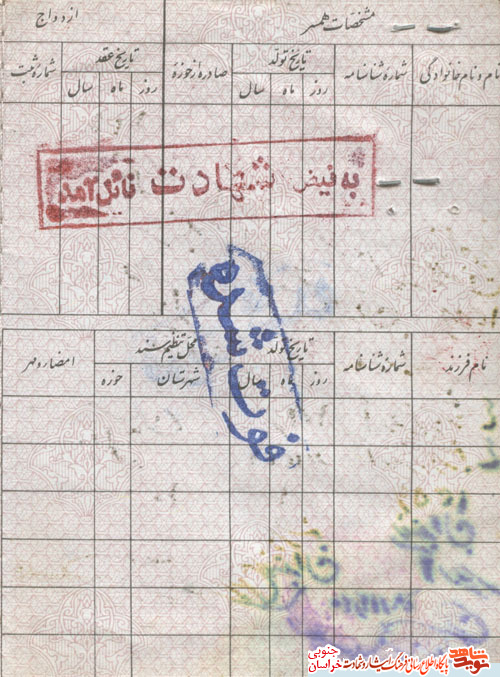 مشخصات همسر
ازدواج
نام و نام خانوادگی
شماره شناسنامه
تاریخ تولد
روز
ماه
سال
صادره از حوزه
تاریخ عقد
روز
ماه
سال
شماره ثبت
به فیض شهادت نائل آمد
فوت شده
نام فرزند
شماره شناسنامه
تاریخ تولد
روز
ماه
سال
محل تنظیم سند
شهرستان
حوزه
امضاء و مهر
نوید شاهد
پایگاه اطلاع رسانی فرهنگ ایثار و شهادت
خراسان جنوبی